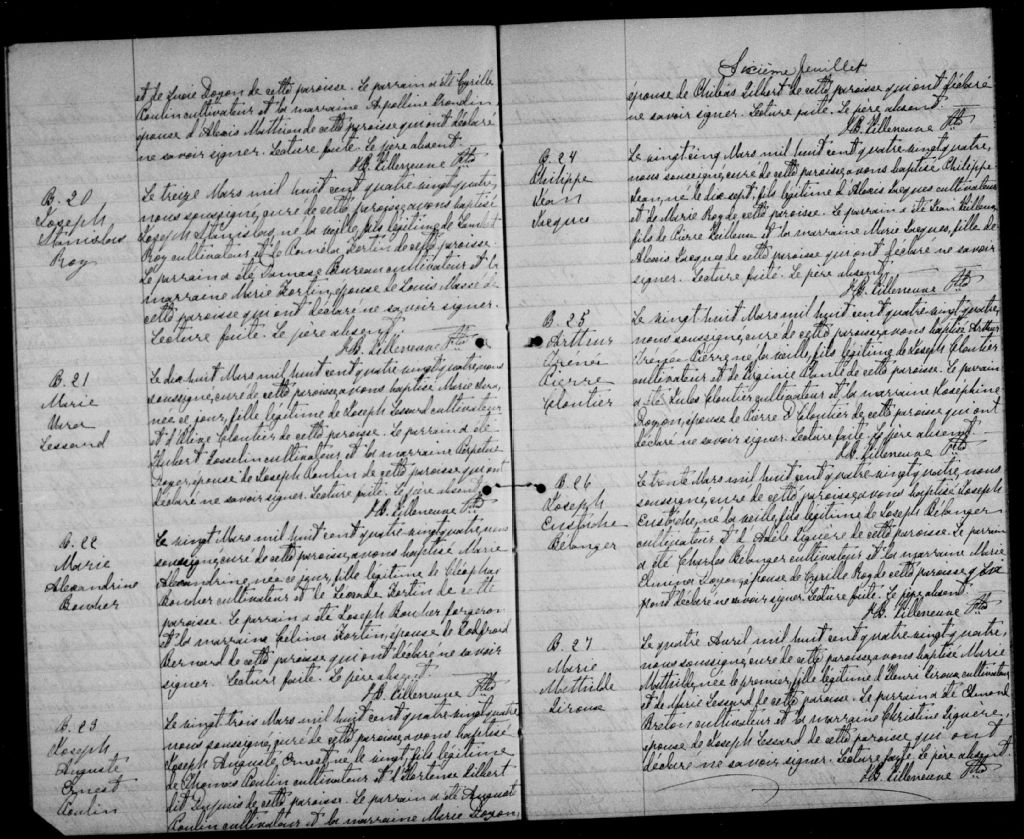 et de Lucie Doyon de cette paroisse. Le parrain a été Cyrille
Poulin cultivateur et la marraine Apolline Grondin,
épouse d'Alexis Mathieu de cette paroisse qui ont déclaré
ne savoir signer. Lecture faite. Le père absent.
J.B. Villeneuve Ptre
B. 20
Joseph
Stanislas
Roy
Le treize Mars mil huit cent quatre vingt quatre,
nous soussigné, curé de cette paroisse, avons baptisé
Joseph Stanislas, né la veille, fils légitime de Lambert
Roy cultivateur et de Fortin de cette paroisse.
Le parrain a été Damase Bureau cultivateur et la
marraine Marie Fortin, épouse de Louis Massé de
cette paroisse qui ont déclaré ne savoir signer.
Lecture faite. Le père absent.
J.B. Villeneuve Ptre
B. 21
Marie
Lessard
Le dix huit Mars mil huit cent quatre vingt quatre, nous
soussigné, curé de cette paroisse, avons baptisé Marie
née ce jour, fille légitime de Joseph Lessard cultivateur
et d'Elize Cloutier de cette paroisse. Le parrain a été
Hubert Josselin cultivateur et la marraine Perpétue
épouse de Joseph Poulin de cette paroisse qui ont
déclaré ne savoir signer. Lecture faite. Le père absent.
J.B. Villeneuve Ptre
B. 22
Marie
Alexandrine
Boucher
Le vingt Mars mil huit cent quatre vingt quatre, nous
soussigné, curé de cette paroisse, avons baptisé Marie
Alexandrine, née ce jour, fille légitime de Cléophas
Boucher cultivateur et de Fortin de cette
paroisse. Le parrain a été Joseph Boucher forgeron
et la marraine Célina Fortin, épouse de Godfroid
Bernard de cette paroisse qui ont déclaré ne savoir
signer. Lecture faite. Le père absent.
J.B. Villeneuve Ptre
B. 23
Joseph
Auguste
Ernest
Poulin
Le vingt trois Mars mil huit cent quatre vingt quatre,
nous soussigné, curé de cette paroisse, avons baptisé
Joseph Auguste Ernest, né le vingt, fils légitime
de Thomas Poulin cultivateur et d'Hortense Gilbert
dit Dupuis de cette paroisse. Le parrain a été Auguste
Poulin cultivateur et la marraine Marie Doyon,
Sixième feuillet
épouse de Philéas Gilbert de cette paroisse qui ont déclaré
ne savoir signer. Lecture faite. Le père absent.
J.B. Villeneuve Ptre
B. 24
Philippe
Jean
Jacques
Le vingt cinq Mars mil huit cent quatre vingt quatre,
nous soussigné, curé de cette paroisse, avons baptisé Philippe
Jean, né le dix sept, fils légitime d'Alexis Jacques cultivateur
et de Marie Roy de cette paroisse. Le parrain a été Jean Veilleux,
fils de Pierre Veilleux et la marraine Marie Jacques, fille de
Alexis Jacques de cette paroisse qui ont déclaré ne savoir
signer. Lecture faite. Le père absent.
J.B. Villeneuve Ptre
B. 25
Arthur
Irénée
Pierre
Cloutier
Le vingt huit Mars mil huit cent quatre vingt quatre,
nous soussigné, curé de cette paroisse, avons baptisé Arthur
Irénée Pierre, né la veille, fils légitime de Joseph Cloutier
cultivateur et de Virginie de cette paroisse. Le parrain
a été Jules Cloutier cultivateur et la marraine Joséphine
épouse de Pierre P. Cloutier de cette paroisse qui ont
déclaré ne savoir signer. Lecture faite. Le père absent.
J.B. Villeneuve Ptre
B. 26
Joseph
Eustache
Bélanger
Le trente Mars mil huit cent quatre vingt quatre, nous
soussigné, curé de cette paroisse, avons baptisé Joseph
Eustache, né la veille, fils légitime de Joseph Bélanger
cultivateur et d'Adèle Giguère de cette paroisse. Le parrain
a été Charles Bélanger cultivateur et la marraine Marie
Doyon épouse de Cyrille Roy de cette paroisse qui
n'ont déclaré ne savoir signer. Lecture faite. Le père absent.
J.B. Villeneuve Ptre
B. 27
Marie
Mathilde
Giroux
Le quatre Avril mil huit cent quatre vingt quatre,
nous soussigné, curé de cette paroisse, avons baptisé Marie
Mathilde, née le premier, fille légitime d'Henri Giroux, cultivateur
et de Marie Lessard de cette paroisse. Le parrain a été Edmond
Breton cultivateur et la marraine Christine Giguère,
épouse de Joseph Lessard de cette paroisse qui ont
déclaré ne savoir signer. Lecture faite. Le père absent.
J.B. Villeneuve Ptre